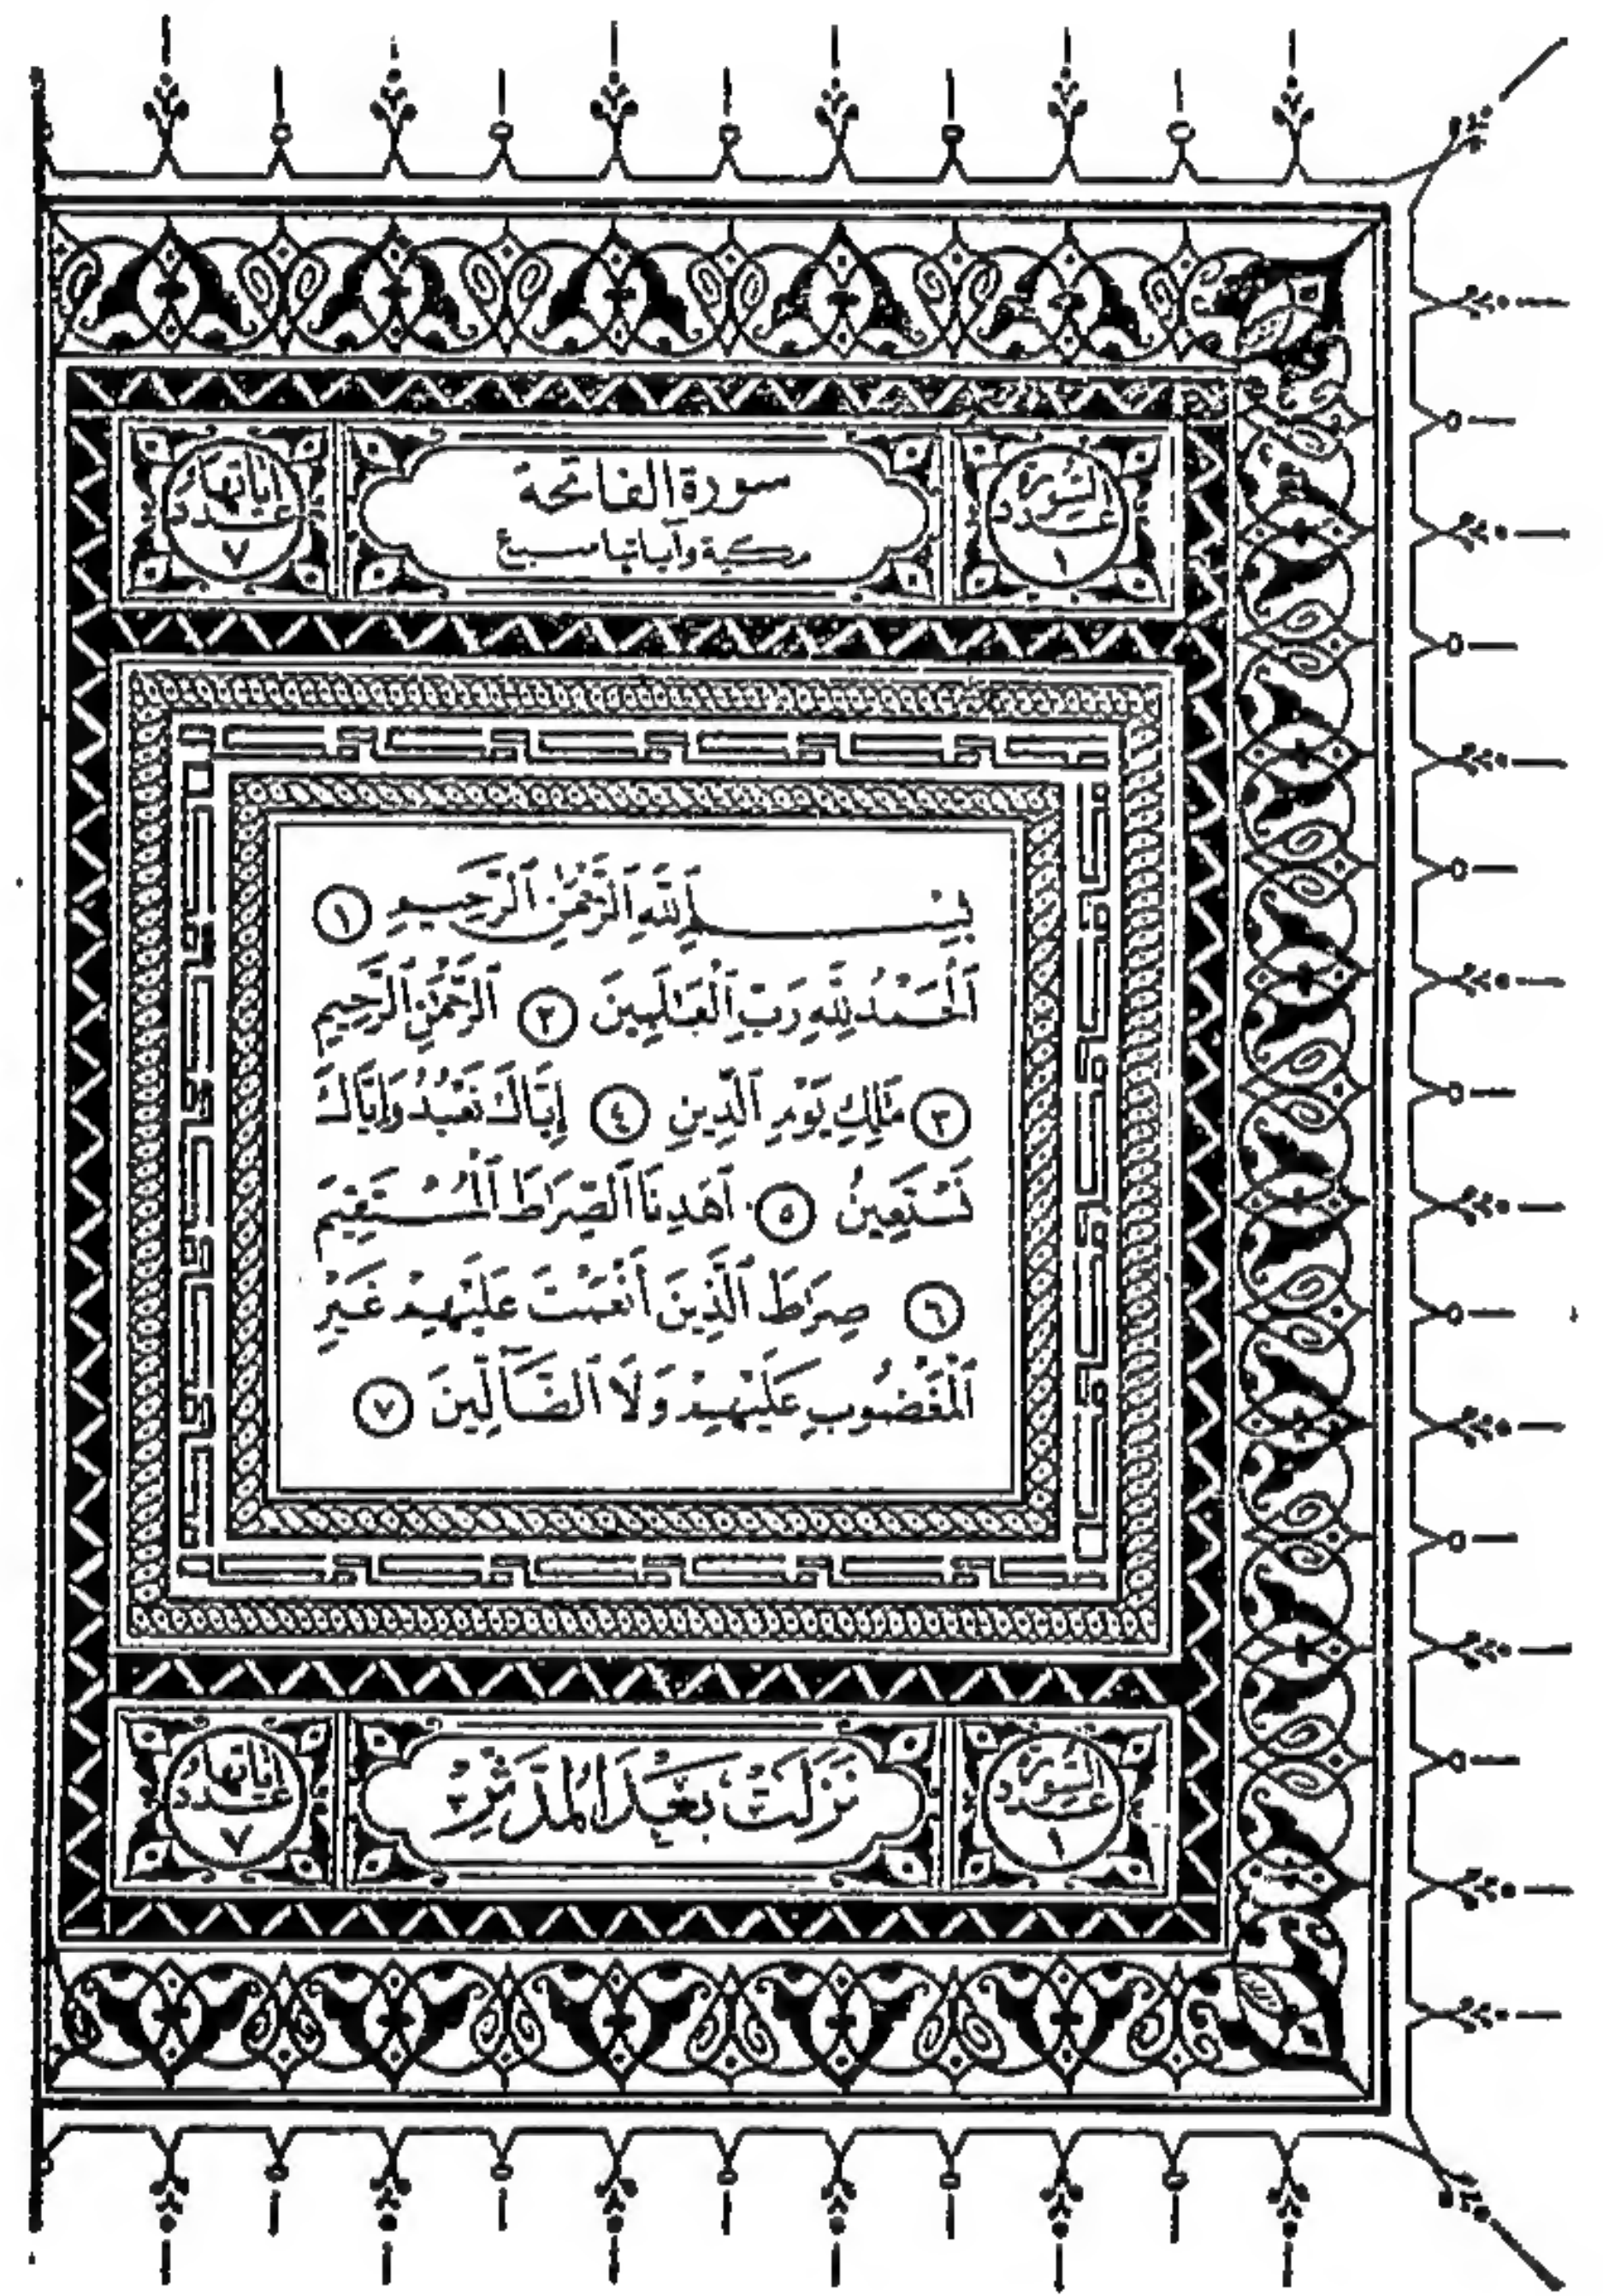 السورة
عدد
١
سورة الفاتحة
مكية وآياتها سبع
آياتها
عدد
٧
بِسْمِ ٱللَّهِ ٱلرَّحْمَٰنِ ٱلرَّحِيمِ ١
ٱلْحَمْدُ لِلَّهِ رَبِّ ٱلْعَٰلَمِينَ ٢ ٱلرَّحْمَٰنِ ٱلرَّحِيمِ
٣ مَٰلِكِ يَوْمِ ٱلدِّينِ ٤ إِيَّاكَ نَعْبُدُ وَإِيَّاكَ
نَسْتَعِينُ ٥ ٱهْدِنَا ٱلصِّرَٰطَ ٱلْمُسْتَقِيمَ
٦ صِرَٰطَ ٱلَّذِينَ أَنْعَمْتَ عَلَيْهِمْ غَيْرِ
ٱلْمَغْضُوبِ عَلَيْهِمْ وَلَا ٱلضَّآلِّينَ ٧
السورة
عدد
١
نَزَلَتْ بَعْدَ المُدَّثِّرْ
آياتها
عدد
٧